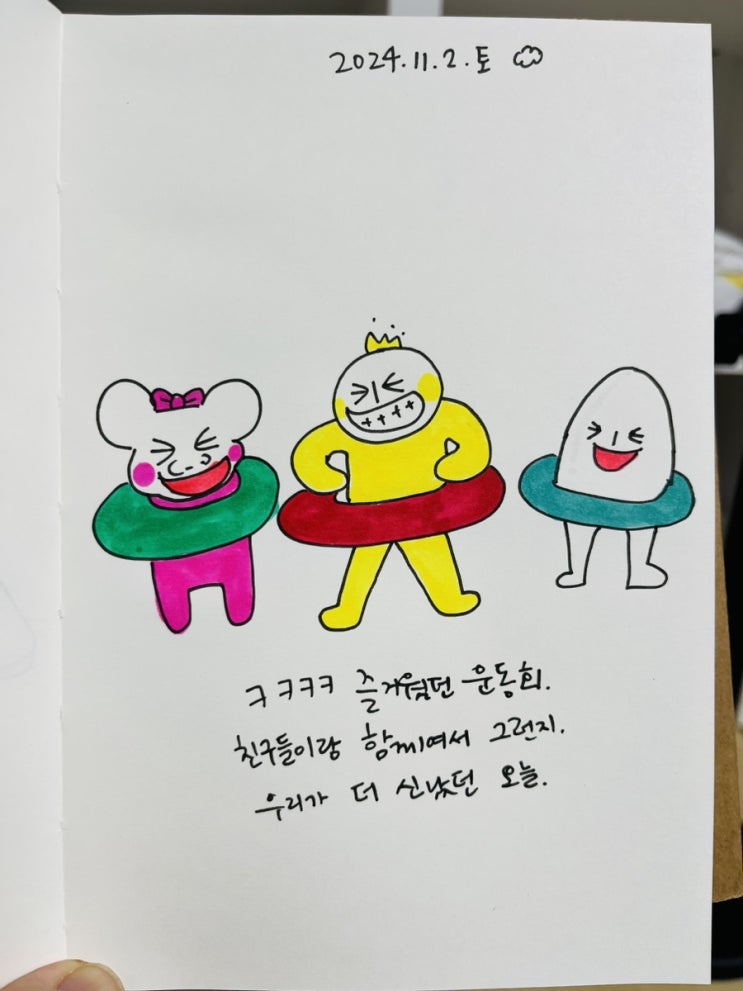 2024.11.2.토
ㅋㅋㅋㅋ 즐거웠던 운동회.
친구들이랑 함께여서 그런지.
우리가 더 신났던 오늘.